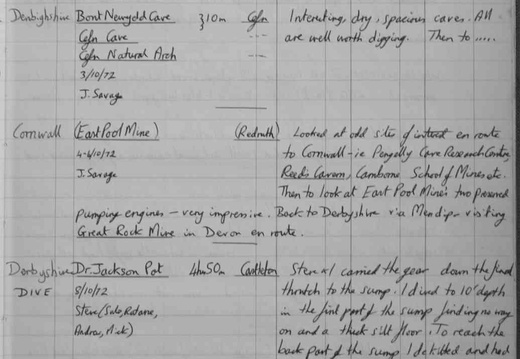 Denbighshire Bont Newydd Cave }10m Cefn Interesting, dry, spacious caves. All
Cefn Cave --- are well worth digging. Then to .....
Cefn Natural Arch ---
3/10/72
J. Savage
Cornwall (East Pool Mine) (Redruth) Looked at odd sites of interest en route
4-6/10/72 to Cornwall - ie Pengelly Cave Research Centre,
J. Savage Reeds Cavern, Camborne School of Mines etc.
Then to look at East Pool Mine's two preserved
pumping engines - very impressive. Back to Derbyshire via Mendip - visiting
Great Rock Mine in Devon en route.
Derbyshire Dr. Jackson Pot 4h50m Castleton Steve & I carried the gear down the final
DIVE 8/10/72 thrutch to the sump. I dived to 10' depth
Steve (Sale, Rotane, in the first part of the sump finding no way
Mick) on and a thick silt floor. To reach the
back part of the sump I dekitted and had